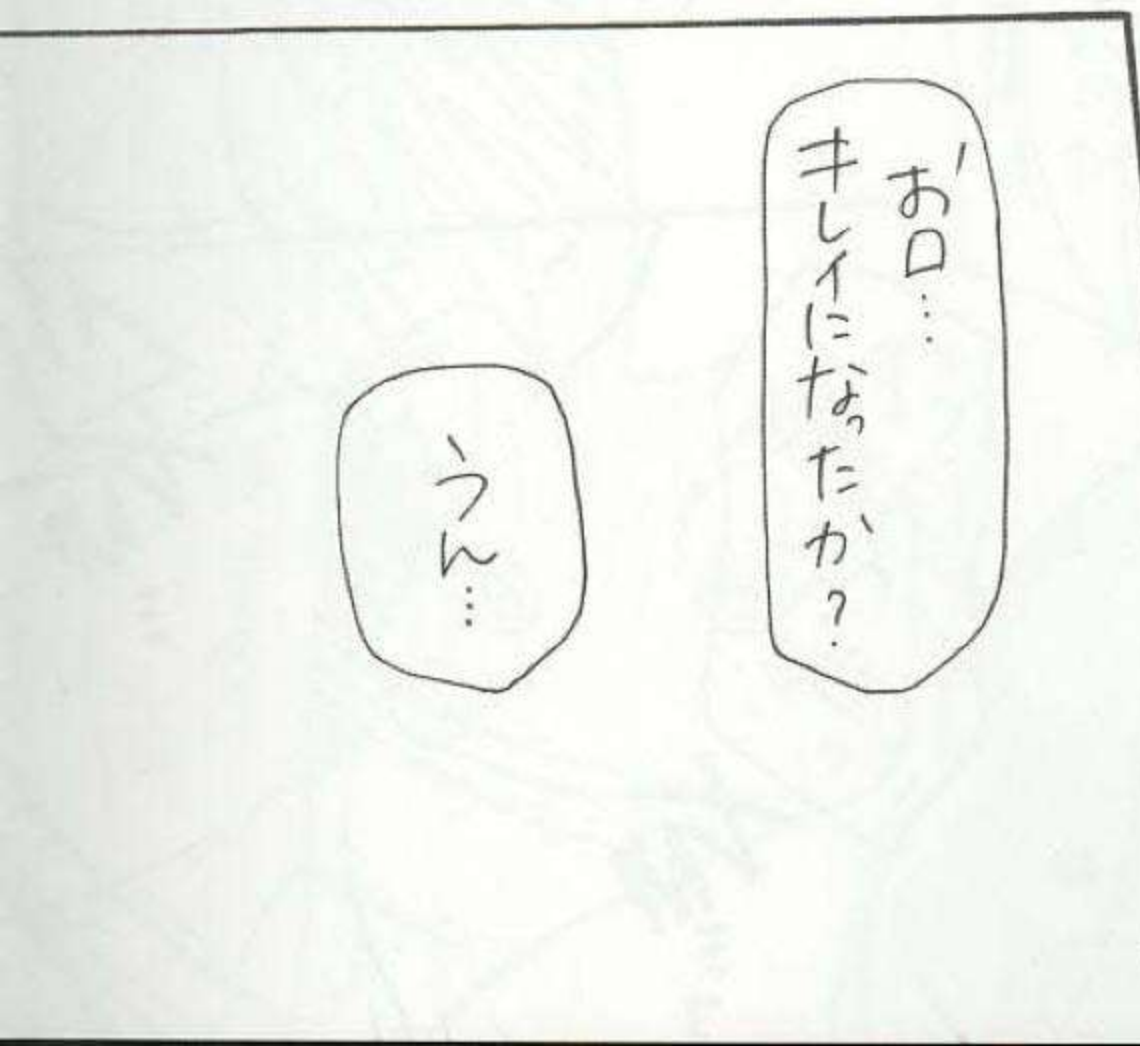 お口…
キレイになったか?
うん…